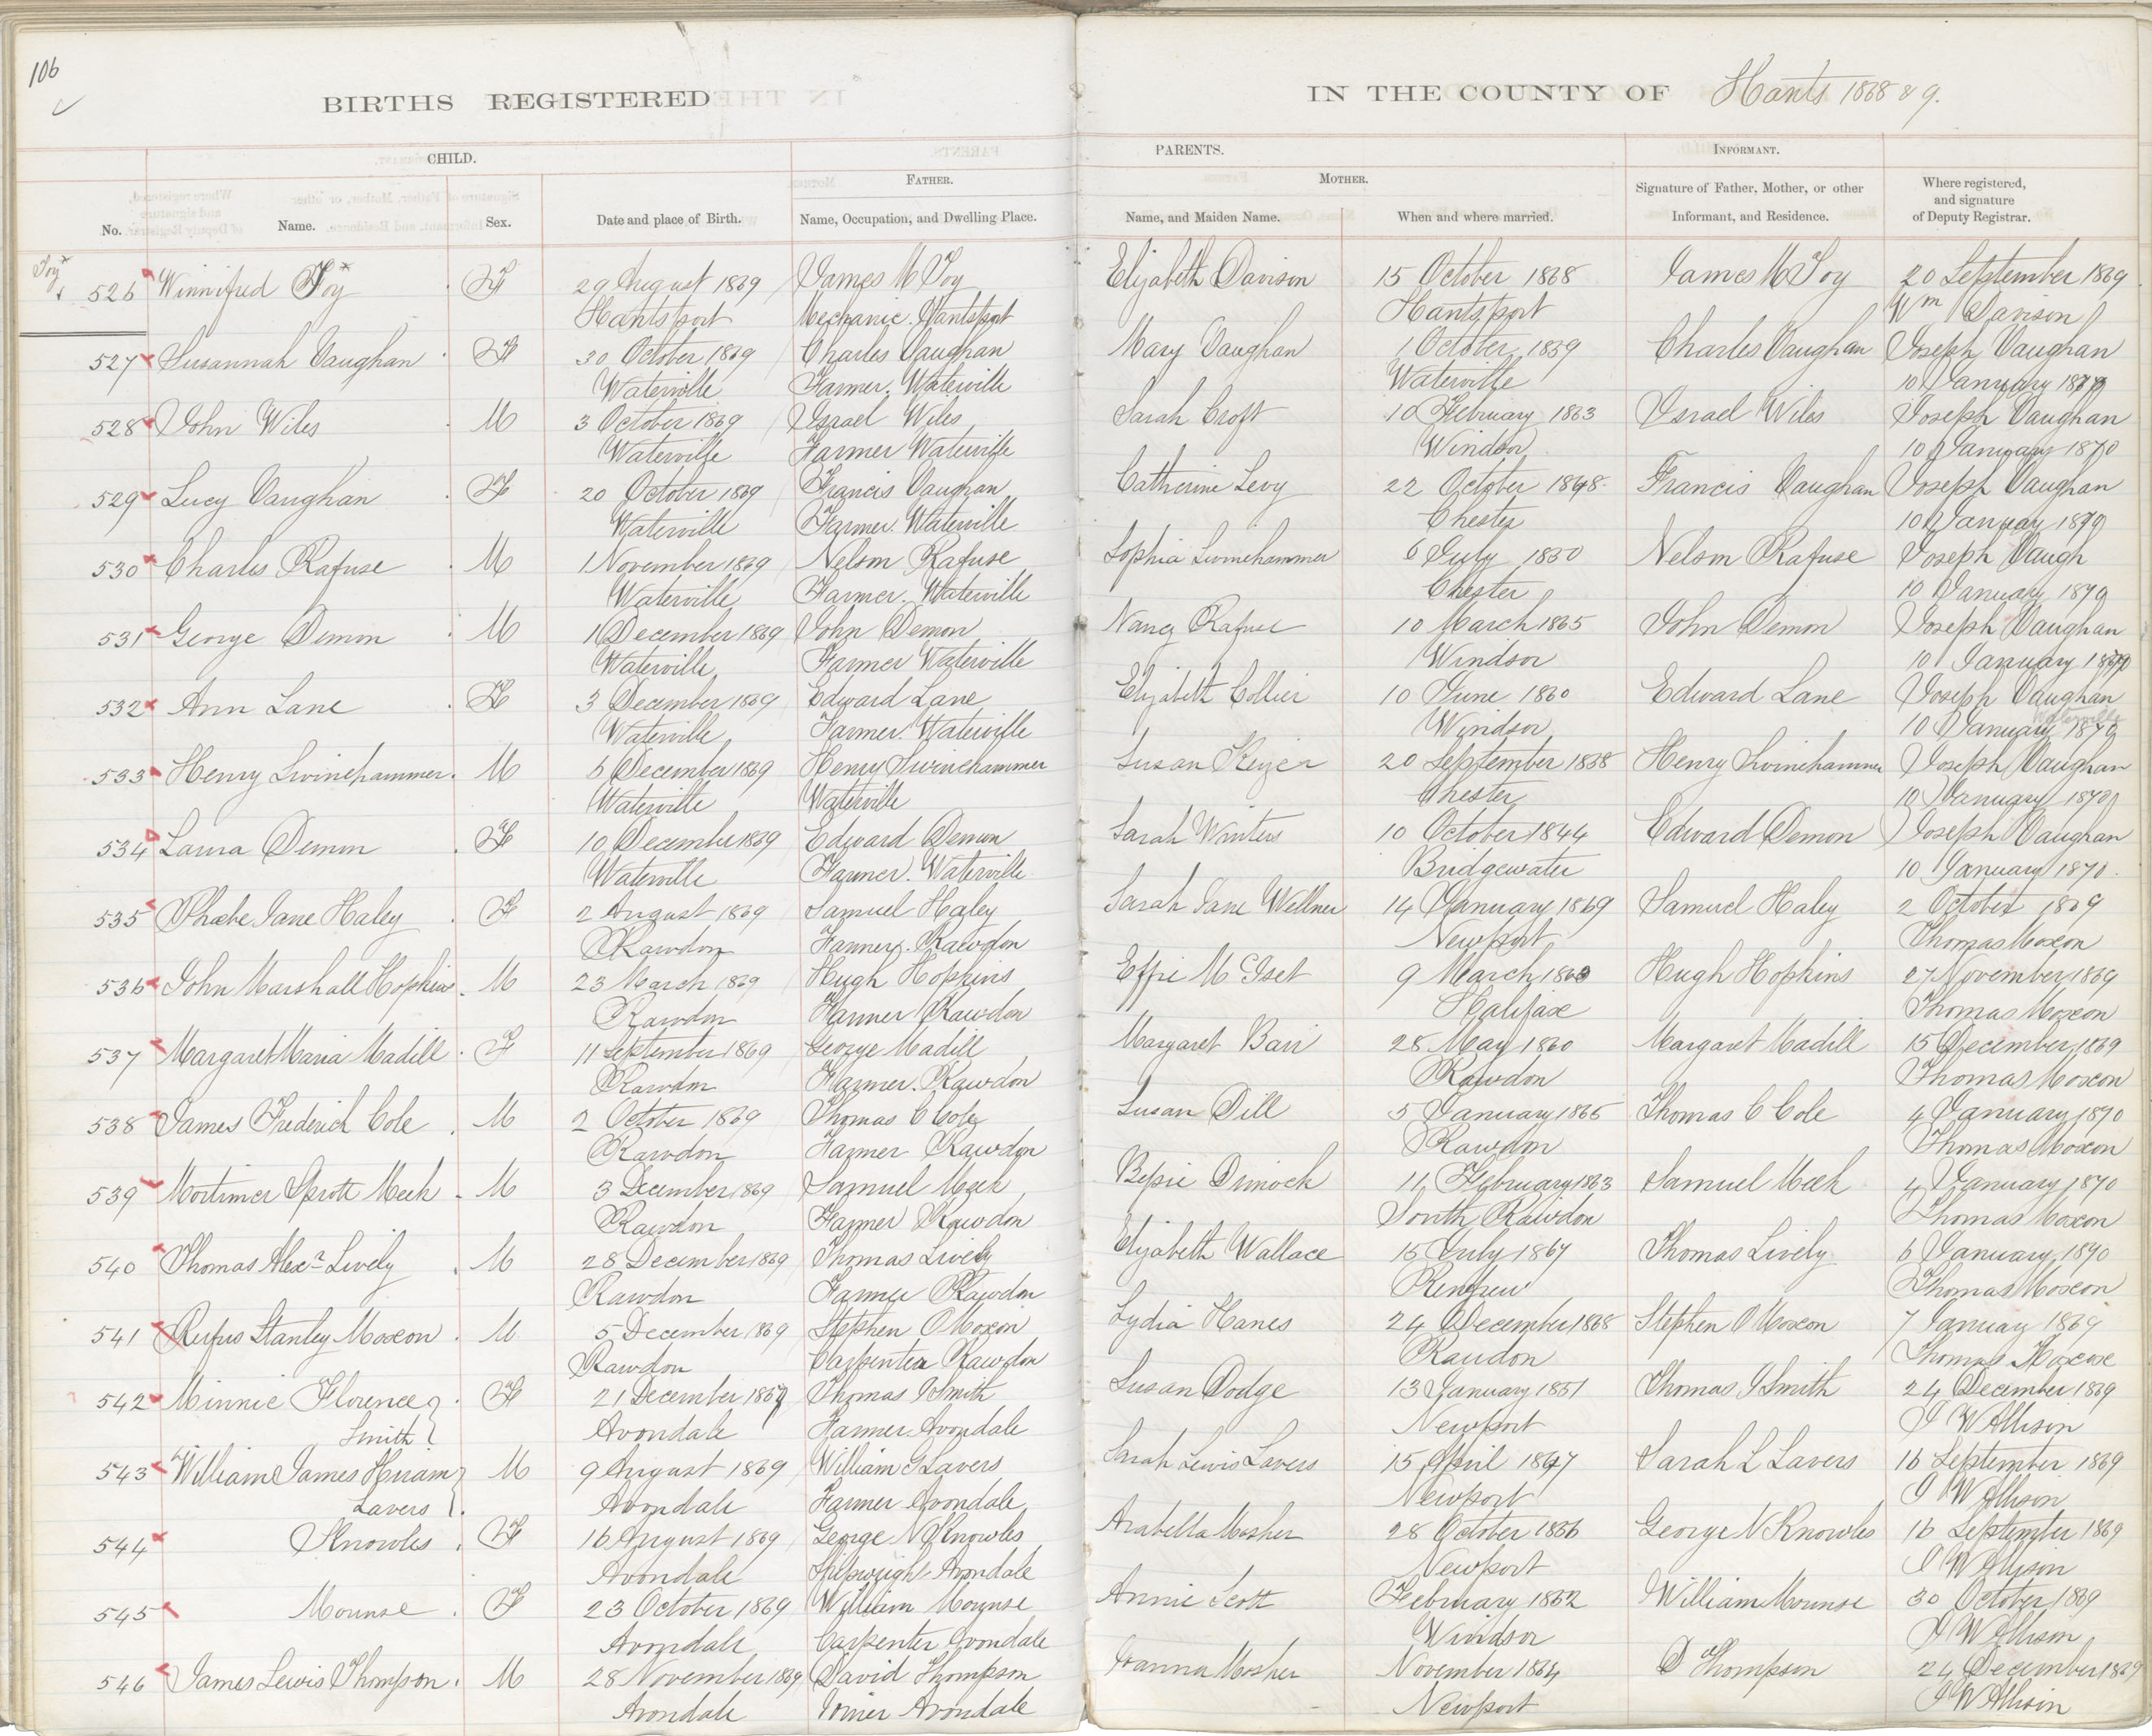 106
BIRTHS REGISTERED
IN THE COUNTY OF Hants 1868 & 9.
CHILD.
PARENTS.
INFORMANT.
FATHER.
MOTHER.
No.
Name.
Sex.
Date and place of Birth.
Name, Occupation, and Dwelling Place.
Name, and Maiden Name.
When and where married.
Signature of Father, Mother, or other
Informant, and Residence.
Where registered,
and signature
of Deputy Registrar.
Foy
526 Winnifred Foy F 29 August 1869 James M Foy Elizabeth Davison 15 October 1868 James M Foy 20 September 1869
Hantsport Mechanic. Hantsport Hantsport Wm Davison
527 Susannah Vaughan F 30 October 1869 Charles Vaughan Mary Vaughan 1 October 1859 Charles Vaughan Joseph Vaughan
Waterville Farmer. Waterville Waterville 10 January 1870
528 John Wiles M 3 October 1869 Israel Wiles Sarah Croft 10 February 1863 Israel Wiles Joseph Vaughan
Waterville Farmer Waterville Windsor 10 January 1870
529 Lucy Vaughan F 20 October 1869 Francis Vaughan Catherine Levy 22 October 1848 Francis Vaughan Joseph Vaughan
Waterville Farmer. Waterville Chester 10 January 1870
530 Charles Rafuse M 1 November 1869 Nelson Rafuse Sophia Swinehammer 6 July 1850 Nelson Rafuse Joseph Vaugh
Waterville Farmer. Waterville Chester 10 January 1870
531 George Demon M 1 December 1869 John Demon Nancy Rafuse 10 March 1865 John Demon Joseph Vaughan
Waterville Farmer Waterville Windsor 10 January 1870
532 Ann Lane F 3 December 1869 Edward Lane Elizabeth Collier 10 June 1860 Edward Lane Joseph Vaughan
Waterville
Waterville Farmer. Waterville Windsor 10 January 1870
533 Henry Swinehammer. M 6 December 1869 Henry Swinehammer Susan Keizer 20 September 1858 Henry Swinehammer Joseph Vaughan
Waterville Waterville Chester 10 January 1870
534 Laura Demon F 10 December 1869 Edward Demon Sarah Winters 10 October 1844 Edward Demon Joseph Vaughan
Waterville Farmer. Waterville Bridgewater 10 January 1870.
535 Phœbe Jane Haley F 2 August 1869 Samuel Haley Sarah Jane Wellner 14 January 1869 Samuel Haley 2 October 1869
Rawdon Farmer. Rawdon Newport Thomas Moxon
536 John Marshall Hopkins M 23 March 1869 Hugh Hopkins Effie 9 March 1860 Hugh Hopkins 27 November 1869
Rawdon Farmer Rawdon Halifax Thomas Moxon
537 Margaret Maria Madill F 11 September 1869 George Madill Margaret 28 May 1860 Margaret Madill 15 December 1869
Rawdon Farmer. Rawdon Rawdon Thomas Moxon
538 James Frederick Cole M 2 October 1869 Thomas C Cole Susan Dill 5 January 1865 Thomas C Cole 4 January 1870
Rawdon Farmer Rawdon Rawdon Thomas Moxon
539 Mortimer Sprott Meek M 3 December 1869 Samuel Meek Bessie Dimock 11 February 1863 Samuel Meek 4 January 1870
Rawdon Farmer Rawdon South Rawdon Thomas Moxon
540 Thomas Alexr Lively M 28 December 1869 Thomas Lively Elizabeth Wallace 15 July 1867 Thomas Lively 6 January 1870
Rawdon Farmer Rawdon Renfrew Thomas Moxon
541 Rufus Stanley Moxon M 5 December 1869 Stephen O Moxon Lydia Hanes 24 December 1868 Stephen O Moxon 7 January 1869
Rawdon Carpenter Rawdon Raudon Thomas Moxon
542 Minnie Florence F 21 December 1867 Thomas J Smith Susan Dodge 13 January 1851 Thomas J Smith 24 December 1869
Smith Avondale Farmer Avondale Newport J W Allison
543 William James Hiram M 9 August 1869 William G Lavers Sarah Lewis Lavers 15 April 1847 Sarah L Lavers 16 September 1869
Lavers Avondale Farmer Avondale Newport J W Allison
544 Knowles F 16 August 1869 George N Knowles Arabella Mosher 28 October 1856 George N Knowles 16 September 1869
Avondale Shipwright Avondale Newport J W Allison
545 Mounse F 23 October 1869 William Mounse Annie Scott February 1852 William Mounse 30 October 1869
Avondale Carpenter Avondale Windsor J W Allison
546 James Lewis Thompson. M 28 November 1869 David Thompson Joanna Mosher November 1864 D Thompson 24 December 1869
Avondale Joiner Avondale Newport J W Allison